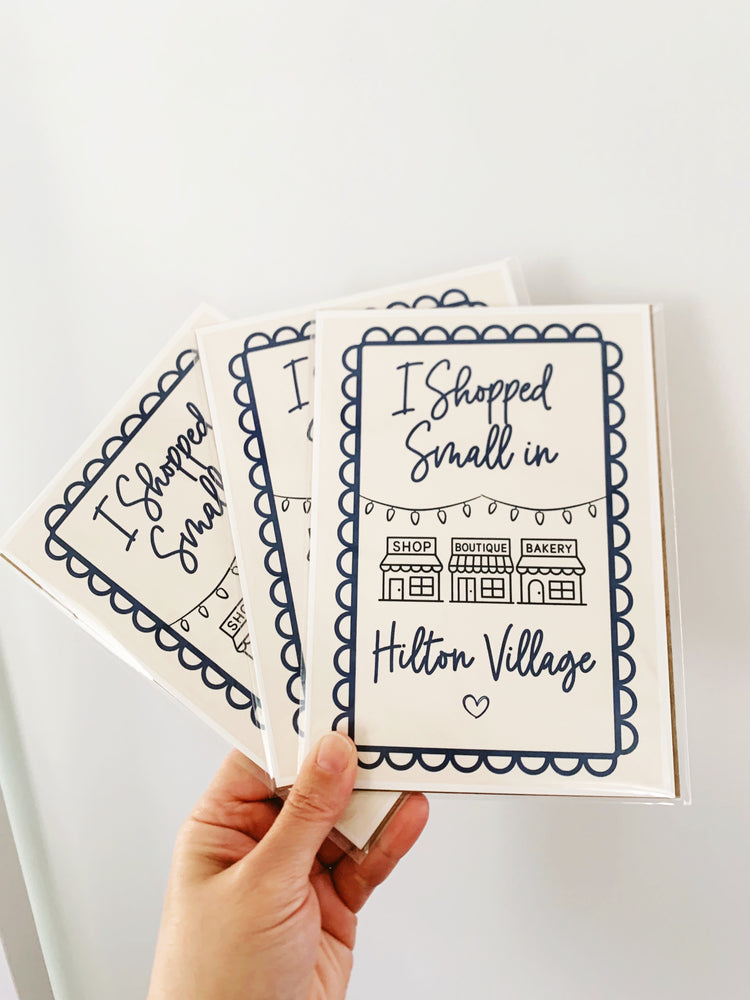 I Shopped
Small in
SHOP
BOUTIQUE
BAKERY
Hilton Village
I
I Shopped
Small
SHO